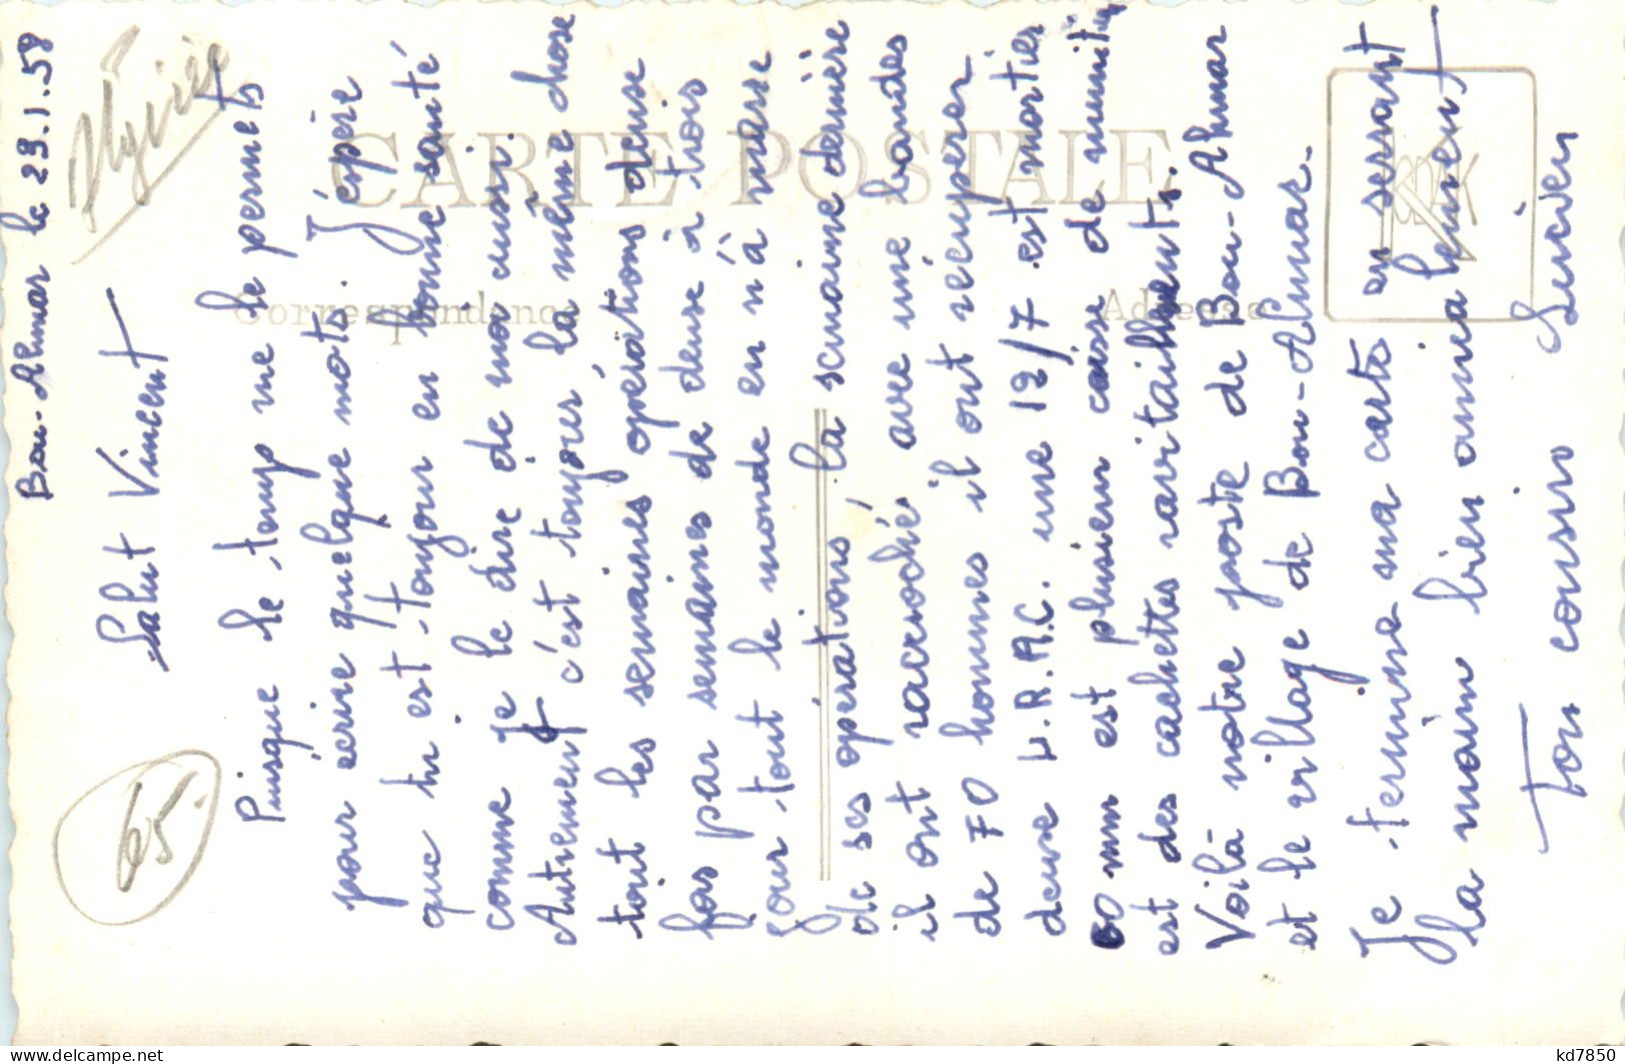 Bou-Ahmar le 23.1.58
Algérie
65.
Salut Vincent
Puisque le temp me le permets
pour ecrire quelque mots. J'éspère
que tu est toujour en bonne santé
comme Je le dire de moi aussi.
Autrement c'est toujours la même chose
tout les semaines opérations deuse
fois par semaines de deuse à trois
jour tout le monde en n'à marre
de ses opérations, la semaine dernière
il ont racroché avec une bandes
de 70 hommes il ont récuperer
deuse H.R.A.C. une 12/7 est mortier
60 mm est plusieur caisse de munition
est des cachettes ravitaillements.
Voilà notre poste de Bou-Ahmar
et le village de Bou-Ahmar.
Je termine ma carte en serrant
la main bien amicalement
Ton cousin Lucien
CARTE POSTALE
Correspondance
Adresse
www.delcampe.net
kd7850